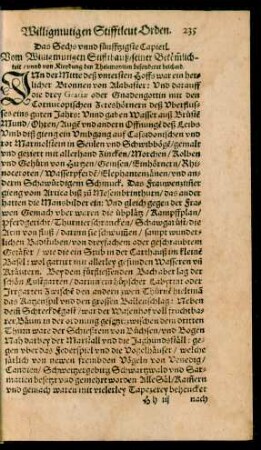 Willigmutigen Stifftleut Orden. 235
Das Sechs vnnd fünfftzigste Capitel.
Vom Willigmutigen Stifftbaus seiner Gelegenlich-
keit / vnnd von
IN der Mitte deß vntersten Hoffs war ein her
licher Bronnen von Alabaster: Vnd darauff
die drey Gratie oder Gnadengöttin mit den
Cornucopischen Freßhörnern deß Vberfluß-
ses eins guten Jahrs: Vnnd gaben Wasser auß Brüst
Mund / Ohren / Augen vnd andern Offnungen deß Leibs
Vnd diß gieng ein Vmbgang auff Cassidonischen vnd
rot Marmelstein in Seulen vnd Schwibbögē / gemalt
vnd geziert mit allerhand Füncken / Muscheln / Kolben
vnd Gehürn von Hirtzen / Gemsen / Einhörnern / Rhi-
nocerotern / Wasserpferde / Elephantenzänen / vnd an-
derm Schawwürdigem Schmuck. Das Frawenzimmer
gieng von Artica biß zu Mesembrinthurn / das ander
hatten die Mansbilder ein: Vnd gleich gegen der Fra-
wen Gemach vber waren die
Pferdgericht / Thurnierschrancken / Schawgänti: die
Arm von fluß / darinn sie schwummen / sampt wunder
lichen Badstuben / von dreyfachem oder geschraubtem
Gesäser / wie die ein Stub in der Carthauß im kleinē
Basel: wol gattiert mit allerley gesunden Wassern vn
Kräutern. Bey dem fürfliessenden Bach aber lag der
schön Lustgarten / darinn ein hübscher Labyrint oder
Irrgarten. Zwischē den andern zweē Thürnē hielt mā
das Katzenspil vnd den grossen Ballenschlag: Neben
war der Wasenhof voll fruchtba-
rer Bäum in der ordnung gesetzt: zwischen dem dritten
Thurn ware der Schießrein von Büchsen / vnd Bogen
Nah darbey der Marstall vnd die Jaghundställ: ge-
gen vber das Federspiel vnd die Vogelhäuser / welche
järlich von newen frembden Vögeln von Venedig /
Candien / Schweitzergebürg Schwartzwald vnd Sar-
matien besetzt vnd gemehrt worden Alle Säl / Kaṁern
vnd gemach waren mit vielerley Tapezerey bedeucket
nach